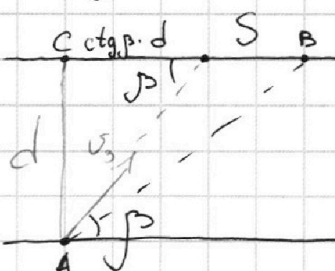 C ctgβ·d S B
β
d
β
A